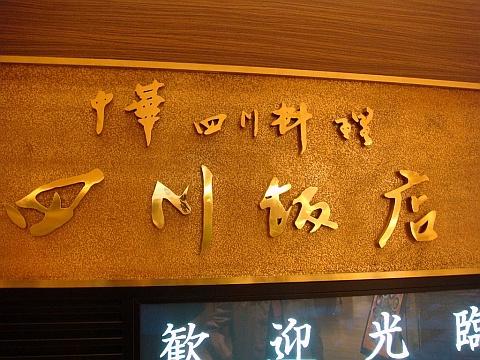 中華 四川料理
四川飯店
歡迎光臨